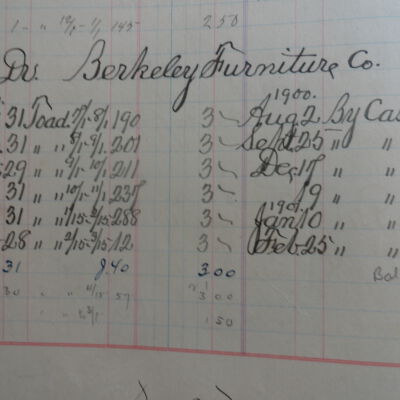 1 - " 10/1 - 1/1 145 250
Dr. Berkeley Furniture Co.
1900.
31 To ad. 7/1 - 8/1 190 3 - Aug 2 By Cas
31 " " 8/1 - 9/1 201 3 - Sept 25 " "
29 " " 9/1 - 10/1 211 3 - Dec 17 " "
31 " " 10/1 - 11/1 237 3 - 19 " "
1901.
31 " " 1/15 - 2/15 288 3 - Jan 10 " "
28 " " 2/15 - 3/15 12 3 - Feb 25 " "
31 J. 40 3 00 Bal
30 " " 4/15 57 3 00
" " 3/1 1 50